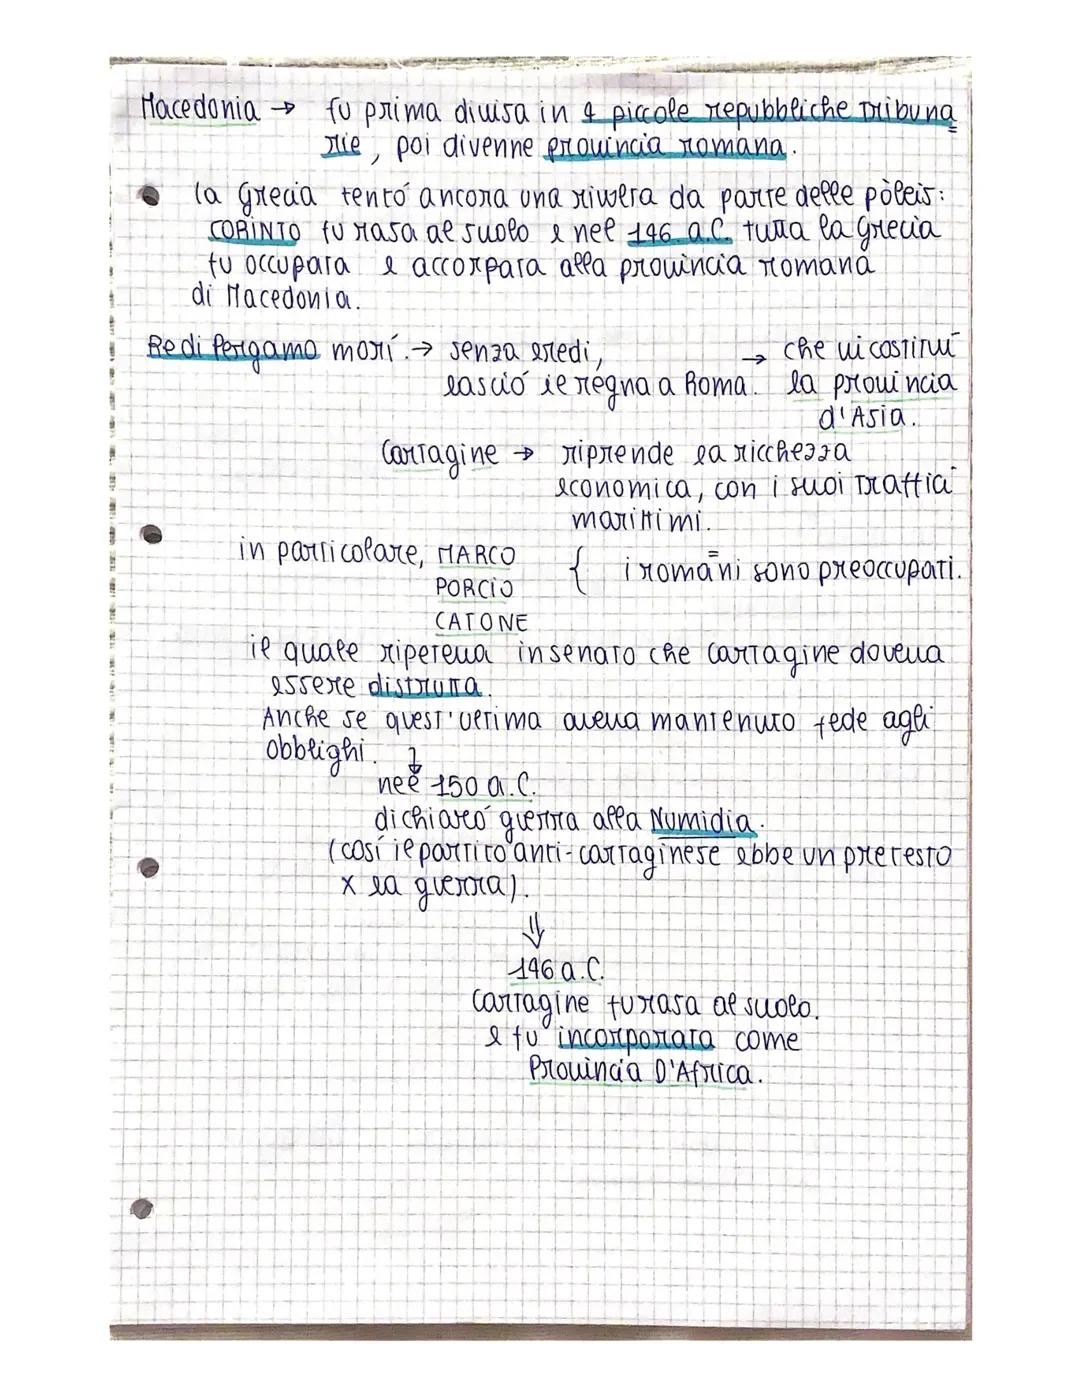 Macedonia → fu prima divisa in 4 piccole repubbliche tribuna
rie, poi divenne provincia romana.
la Grecia tentò ancora una rivolta da parte delle pòleis:
CORINTO fu rasa al suolo e nel 146 a.C. tutta la Grecia
fu occupata e accorpata alla provincia romana
di Macedonia.
Re di Pergamo morì. → senza eredi, → che vi costituì
lasciò il regna a Roma. la provincia
d'Asia.
Cartagine → riprende la ricchezza
economica, con i suoi traffici
marittimi.
in particolare, MARCO { i romani sono preoccupati.
PORCIO
CATONE
il quale ripeteva in senato che Cartagine doveva
essere distrutta.
Anche se quest'ultima aveva mantenuto fede agli
obblighi. ↓
nel 150 a.C.
dichiarò guerra alla Numidia.
(così il partito anti-cartaginese ebbe un pretesto
x la guerra).
⇓
146 a.C.
Cartagine fu rasa al suolo.
e fu incorporata come
Provincia D'Africa.